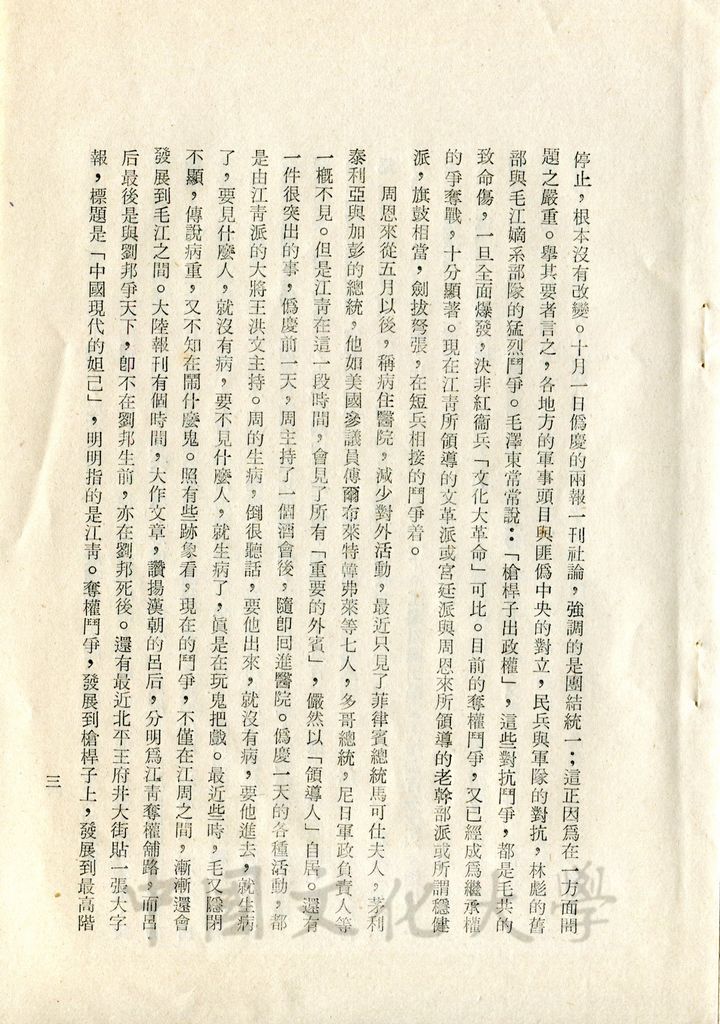 停止，根本沒有改變。十月一日僞慶的兩報一刊社論，強調的是團結統一；這正因爲在一方面問
題之嚴重。舉其要者言之，各地方的軍事頭目與匪僞中央的對立，民兵與軍隊的對抗，林彪的舊
部與毛江嫡系部隊的猛烈鬥爭。毛澤東常常說：「槍桿子出政權」，這些對抗鬥爭，都是毛共的
致命傷，一旦全面爆發，決非紅衞兵「文化大革命」可比。目前的奪權鬥爭，又已經成爲繼承權
的爭奪戰，十分顯著。現在江靑所領導的文革派或宮廷派與周恩來所領導的老幹部派或所謂穩健
派，旗鼓相當，劍拔弩張，在短兵相接的鬥爭着。
周恩來從五月以後，稱病住醫院，減少對外活動，最近只見了菲律賓總統馬可仕夫人，茅利
泰利亞與加彭的總統，他如美國參議員傅爾布萊特韓弗萊等七人，多哥總統，尼日軍政負責人等
一槪不見。但是江靑在這一段時間，會見了所有「重要的外賓」，儼然以「領導人」自居。還有
一件很突出的事，僞慶前一天，周主持了一個酒會後，隨卽回進醫院。僞慶一天的各種活動，都
是由江靑派的大將王洪文主持。周的生病，倒很聽話，要他出來，就沒有病，要他進去，就生病
了，要見什麼人，就沒有病，要不見什麼人，就生病了，眞是在玩鬼把戲。最近些時，毛又隱閉
不顯，傳說病重，又不知在鬧什麼鬼。照有些跡象看，現在的鬥爭，不僅在江周之間，漸漸還會
發展到毛江之間。大陸報刊有個時間，大作文章，讚揚漢朝的呂后，分明爲江靑奪權舖路，而呂
后最後是與劉邦爭天下，卽不在劉邦生前，亦在劉邦死後。還有最近北平王府井大街貼一張大字
報，標題是「中國現代的妲己」，明明指的是江靑。奪權鬥爭，發展到槍桿子上，發展到最高階
三
中國文化大學